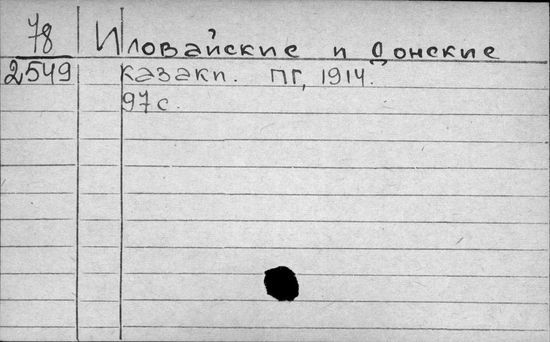 78
2549
Иловайские и Донские
казаки. ПГ, 1914.
97 с.